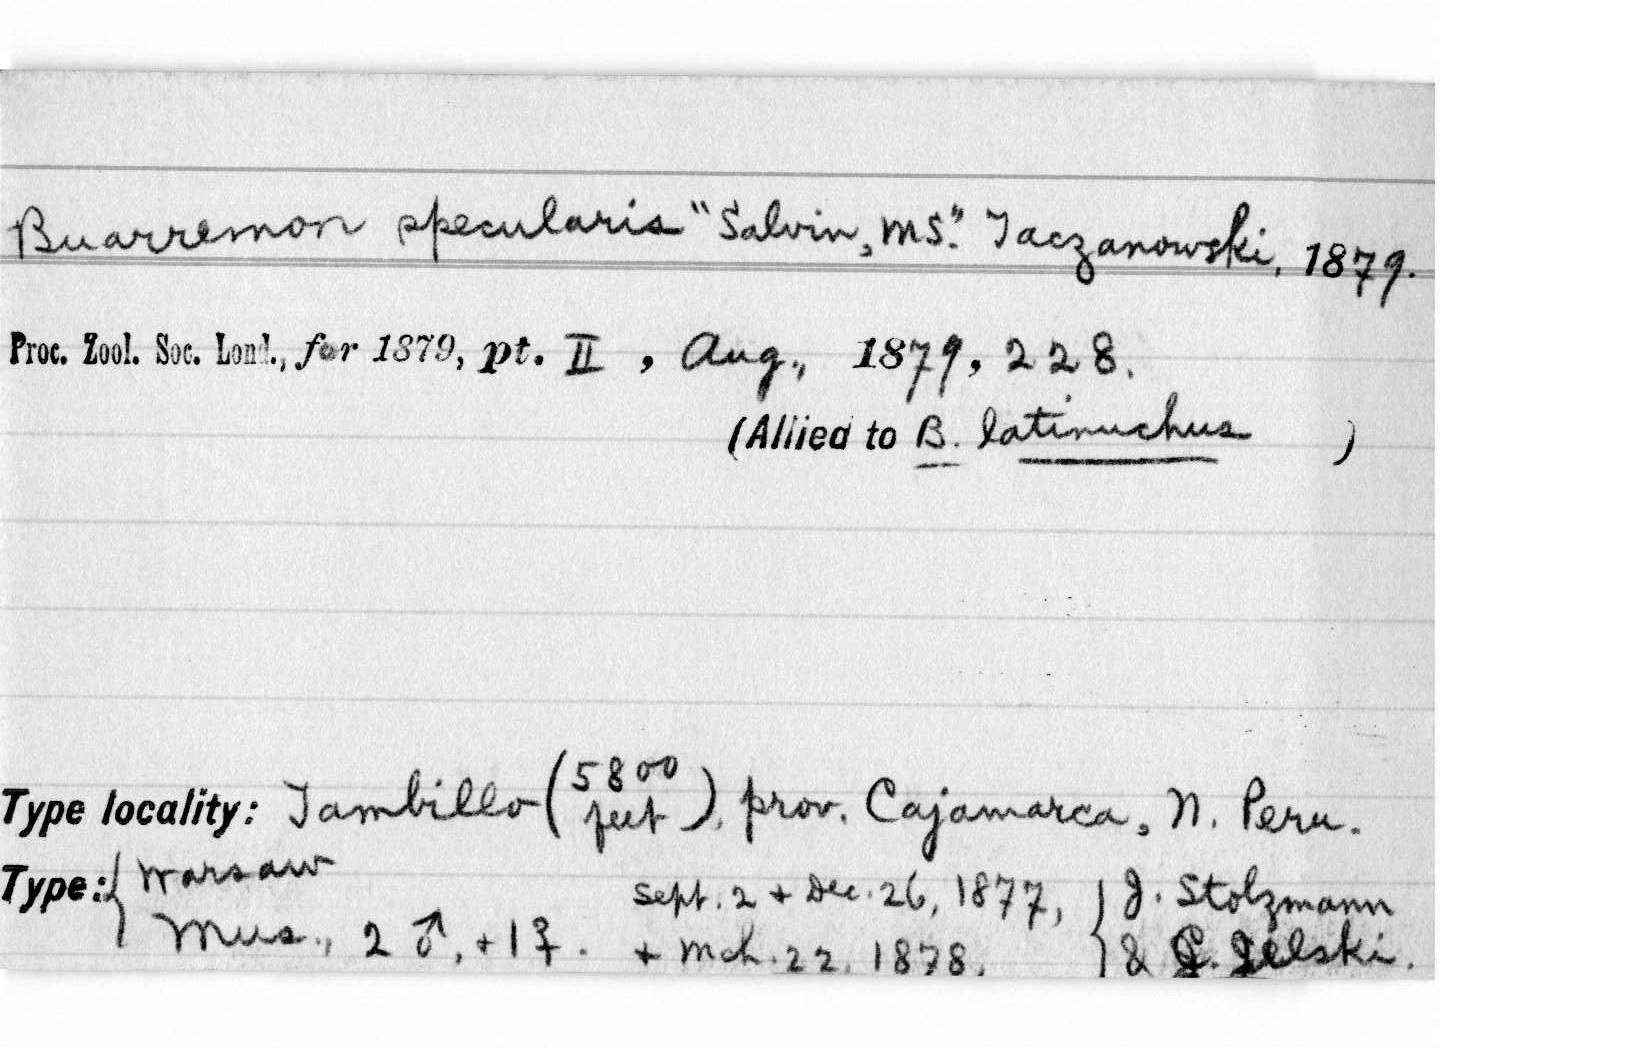 Buarremon specularis "Salvin, MS." Taczanowski, 1879.
Proc. Zool. Soc. Lond., for 1879, pt. II, Aug., 1879, 228.
(Allied to B. latinuchus )
Type locality: Tambillo (5800 feet), prov. Cajamarca, N. Peru.
Type: { Warsaw
Mus., 2 ♂, + 1 ♀.
Sept. 2 + Dec. 26, 1877,
+ Mch. 22, 1878.
} J. Stolzmann
& Jelski.